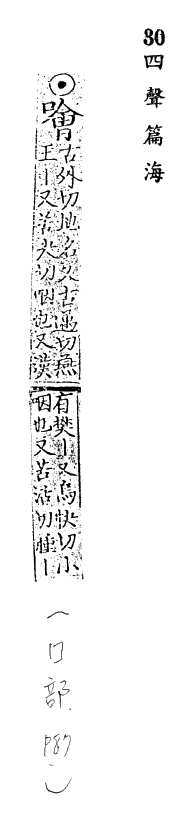 30 四聲篇海
噲
古外切地名又古邁切燕
王丨又苦夬切咽也又漢
有樊丨又烏快切小
咽也又苦活切腫丨
(口部 P87)